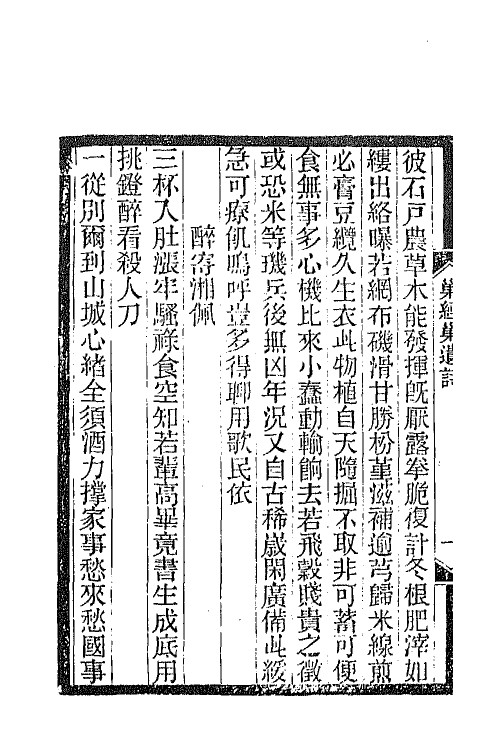 巢經巢遺詩
一
彼石戸農草木能發揮旣厭露拳脆復計冬根肥滓如
縷出絡曝若網布磯滑甘勝枌堇滋補逾芎歸米線煎
必膏豆纜久生衣此物植自天隨掘不取非可蓄可便
食無事多心機比來小蠢動輸餉去若飛穀賤貴之徵
或恐米等璣兵後無凶年況又自古稀歲閑廣備此綏
急可療飢嗚呼豈多得聊用歌民依
醉寄湘佩
三杯入肚漲牢騷祿食空知若輩高畢竟書生成底用
挑鐙醉看殺人刀
一從別爾到山城心緒全須酒力撐家事愁來愁國事